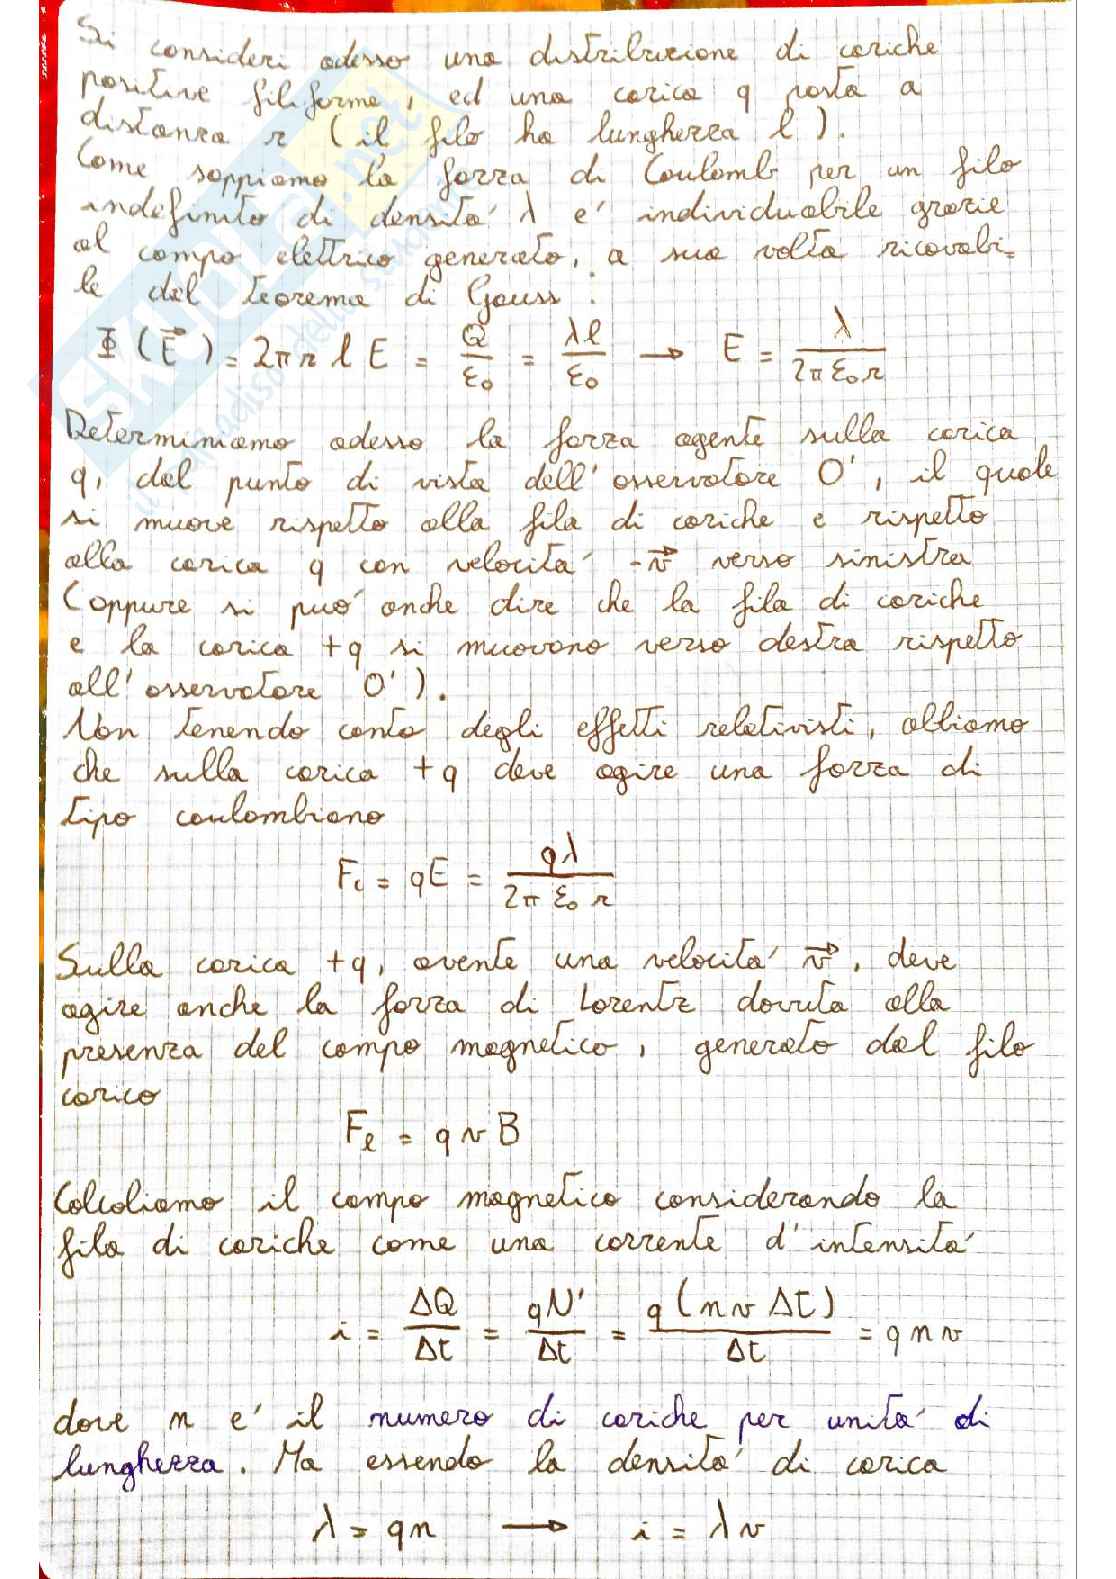 Si consideri adesso una distribuzione di cariche
positive filiforme, ed una carica q posta a
distanza r (il filo ha lunghezza l).
Come sappiamo la forza di Coulomb per un filo
indefinito di densita' λ e' individuabile grazie
al campo elettrico generato, a sua volta ricavabi=
le dal teorema di Gauss:
Φ(E⃗) = 2πr l E = Q/ε₀ = λl/ε₀ → E = λ/(2πε₀r)
Determiniamo adesso la forza agente sulla carica
q, dal punto di vista dell'osservatore O', il quale
si muove rispetto alla fila di cariche e rispetto
alla carica q con velocita' -v⃗ verso sinistra
(oppure si puo' anche dire che la fila di cariche
e la carica +q si muovono verso destra rispetto
all'osservatore O').
Non tenendo conto degli effetti relativisti, abbiamo
che sulla carica +q deve agire una forza di
tipo coulombiano
Fc = qE = qλ/(2πε₀r)
Sulla carica +q, avente una velocita' v⃗, deve
agire anche la forza di Lorentz dovuta alla
presenza del campo magnetico, generato dal filo
carico
Fℓ = qvB
Calcoliamo il campo magnetico considerando la
fila di cariche come una corrente d'intensita'
i = ΔQ/Δt = qN'/Δt = q(nvΔt)/Δt = qnv
dove n e' il numero di cariche per unita' di
lunghezza. Ma essendo la densita' di carica
λ = qn → i = λv